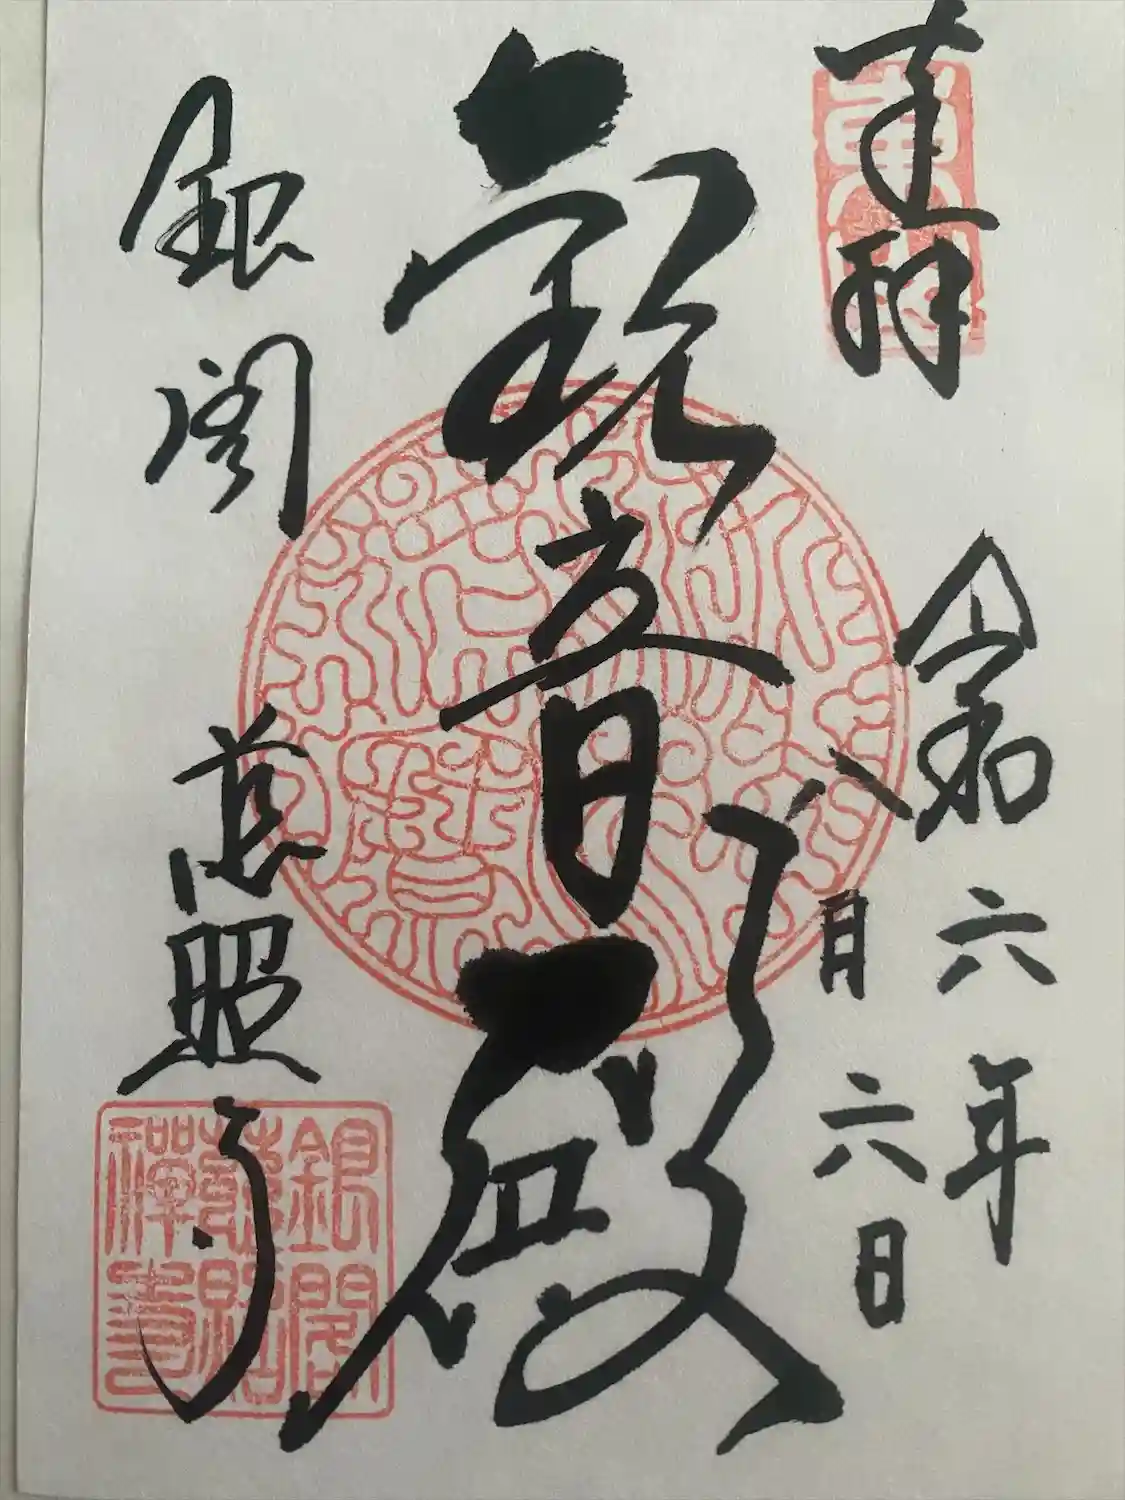 奉拝
令和六年
八月六日
観音殿
銀閣
慈照寺
銀閣
慈照
禅寺